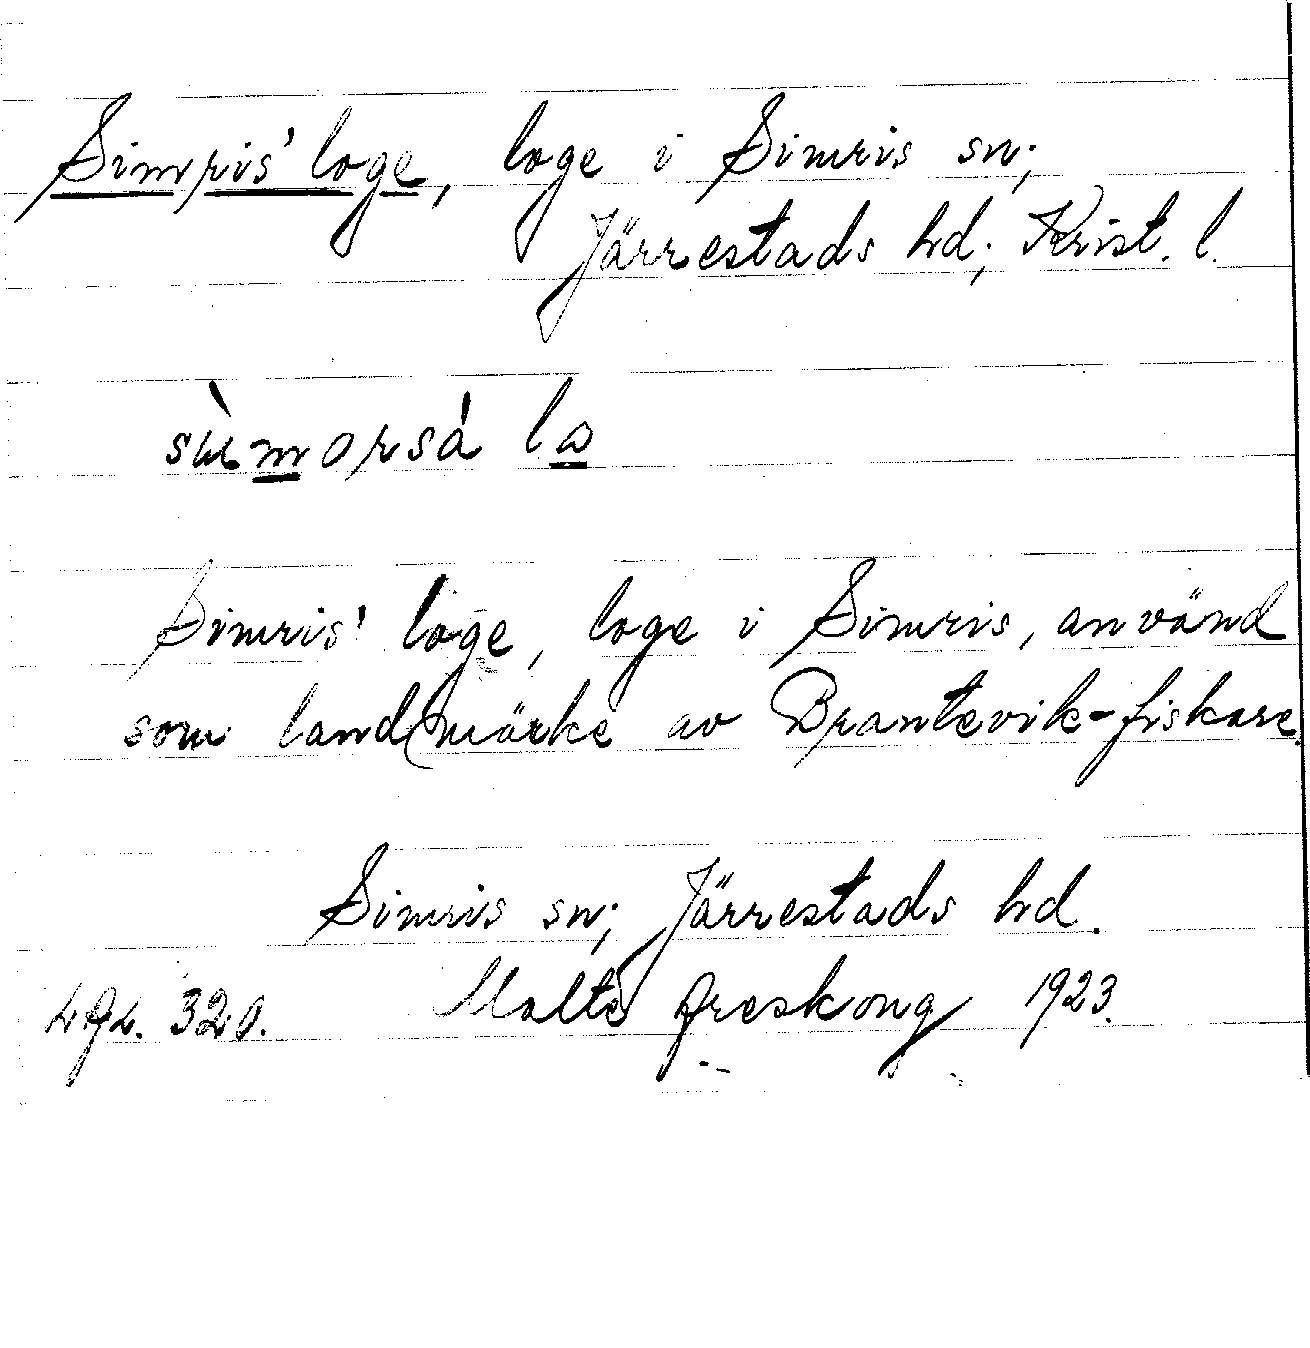 Simris' loge, loge i Simris sn;
Järrestads hd; Krist. l.
Simris' loge, loge i Simris, använd
som landmärke av Brantevik-fiskare.
Simris sn; Järrestads hd.
320. Malte Areskoug 1923.